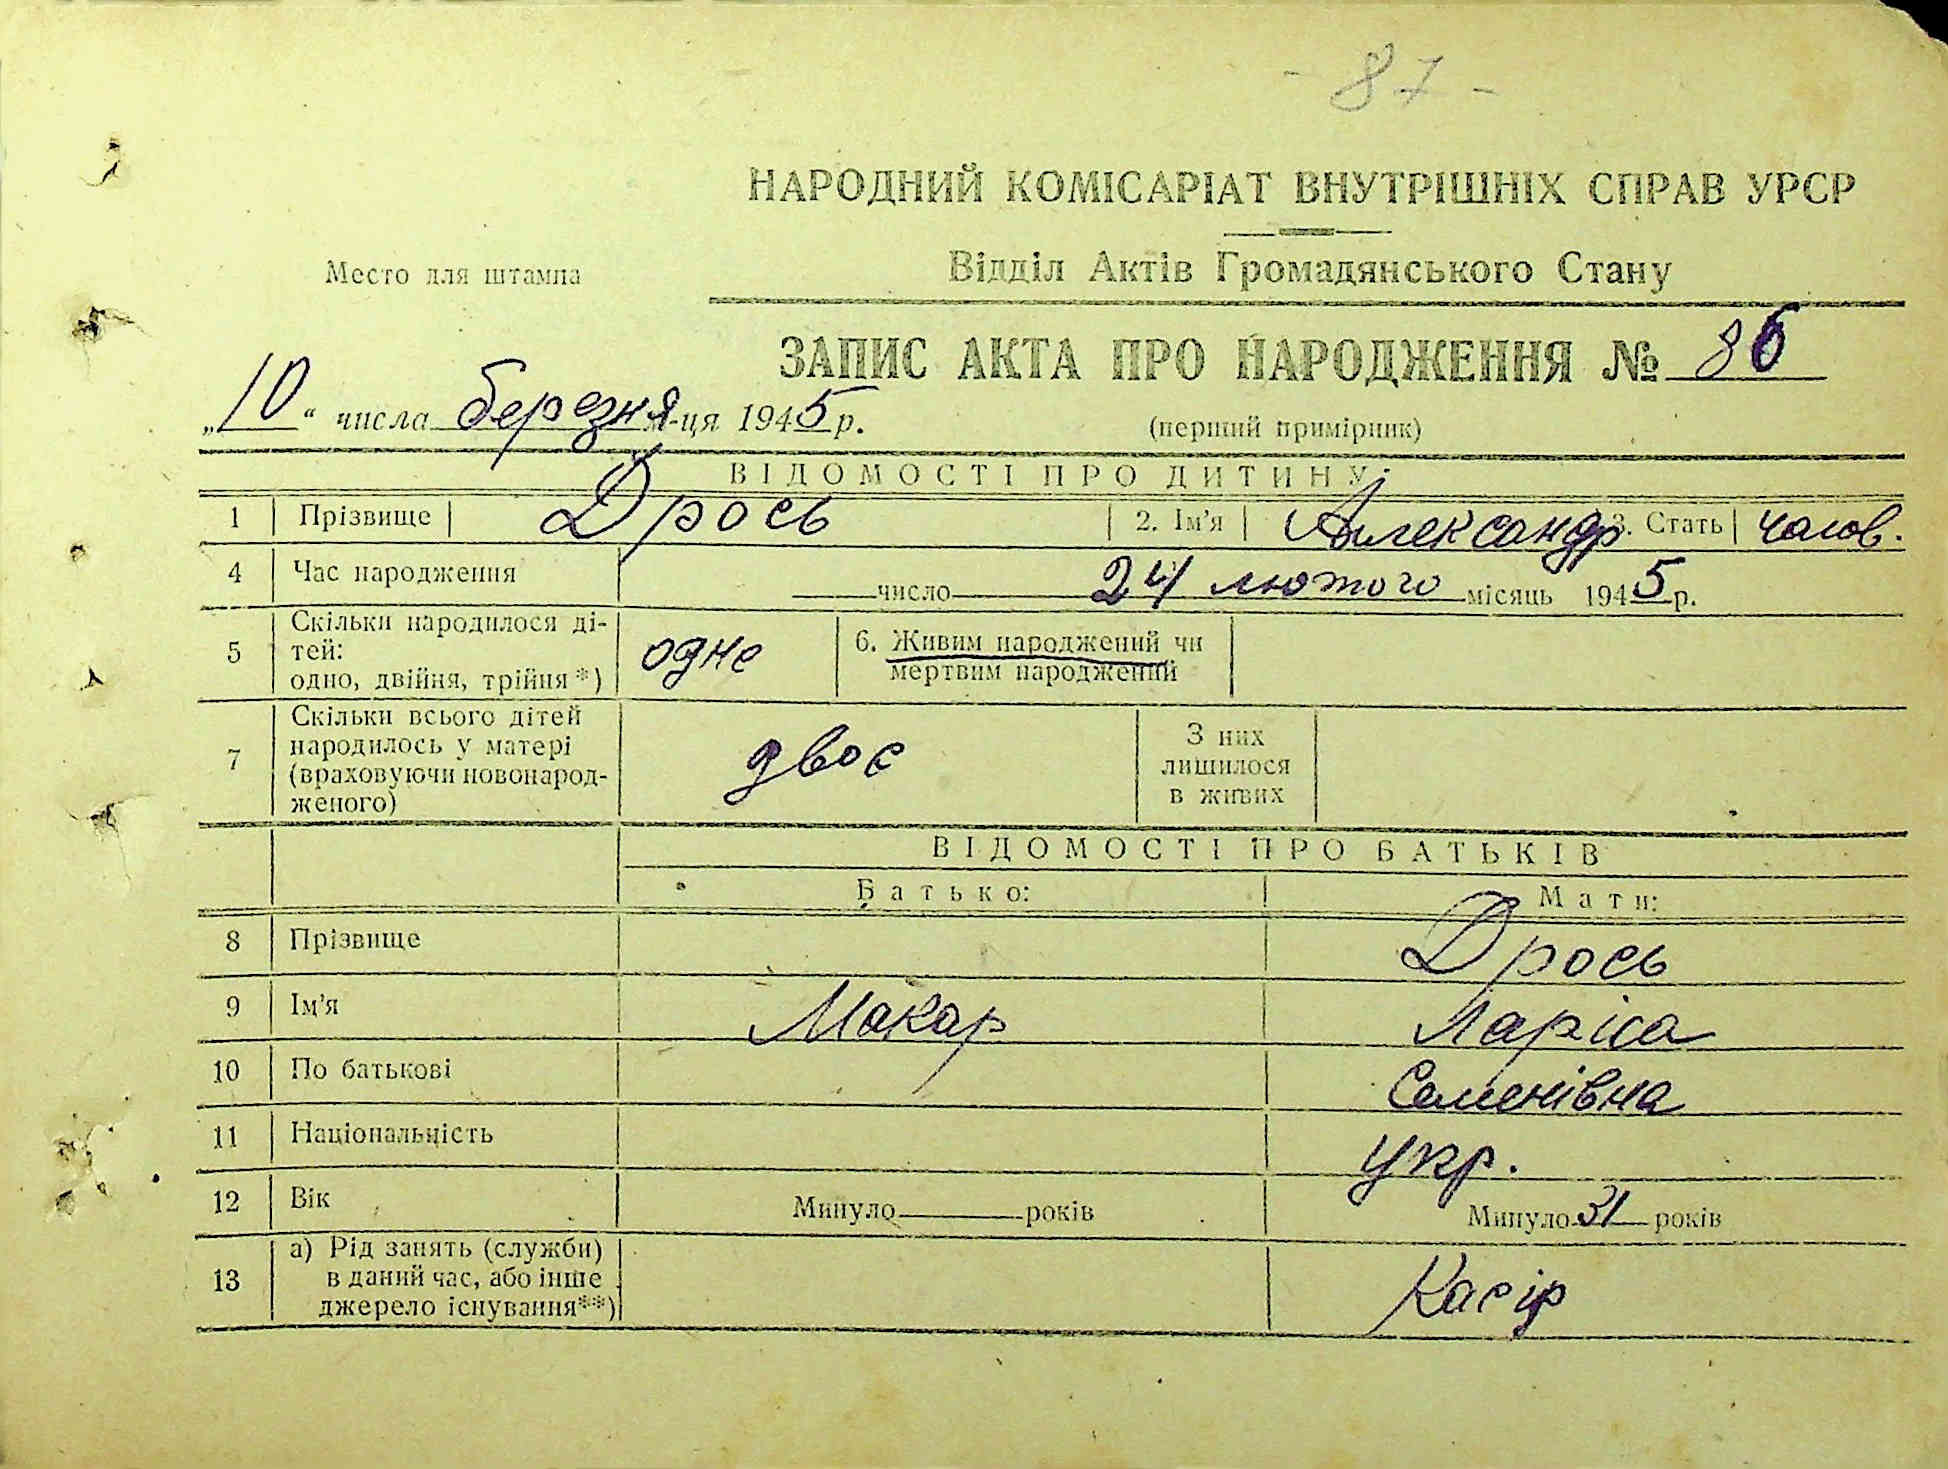 - 87 -
НАРОДНИЙ КОМІСАРІАТ ВНУТРІШНІХ СПРАВ УРСР
Место для штампа
Відділ Актів Громадянського Стану
ЗАПИС АКТА ПРО НАРОДЖЕННЯ № 86
„10“ числа березня м-ця 1945 р.
(перший примірник)
ВІДОМОСТІ ПРО ДИТИНУ
1 Прізвище Дрось 2. Ім'я Александр 3. Стать чолов.
4 Час народження число 24 лютого місяць 1945 р.
5 Скільки народилося ді-
тей:
одно, двійня, трійня *) одне
6. Живим народжений чи
мертвим народжений
7 Скільки всього дітей
народилось у матері
(враховуючи новонарод-
женого) двоє
З них
лишилося
в живих
ВІДОМОСТІ ПРО БАТЬКІВ
Батько: Мати:
8 Прізвище Дрось
9 Ім'я Макар Ларіса
10 По батькові Семенівна
11 Національність укр.
12 Вік Минуло років Минуло 31 років
13 а) Рід занять (служби)
в даний час, або інше
джерело існування**) Касір